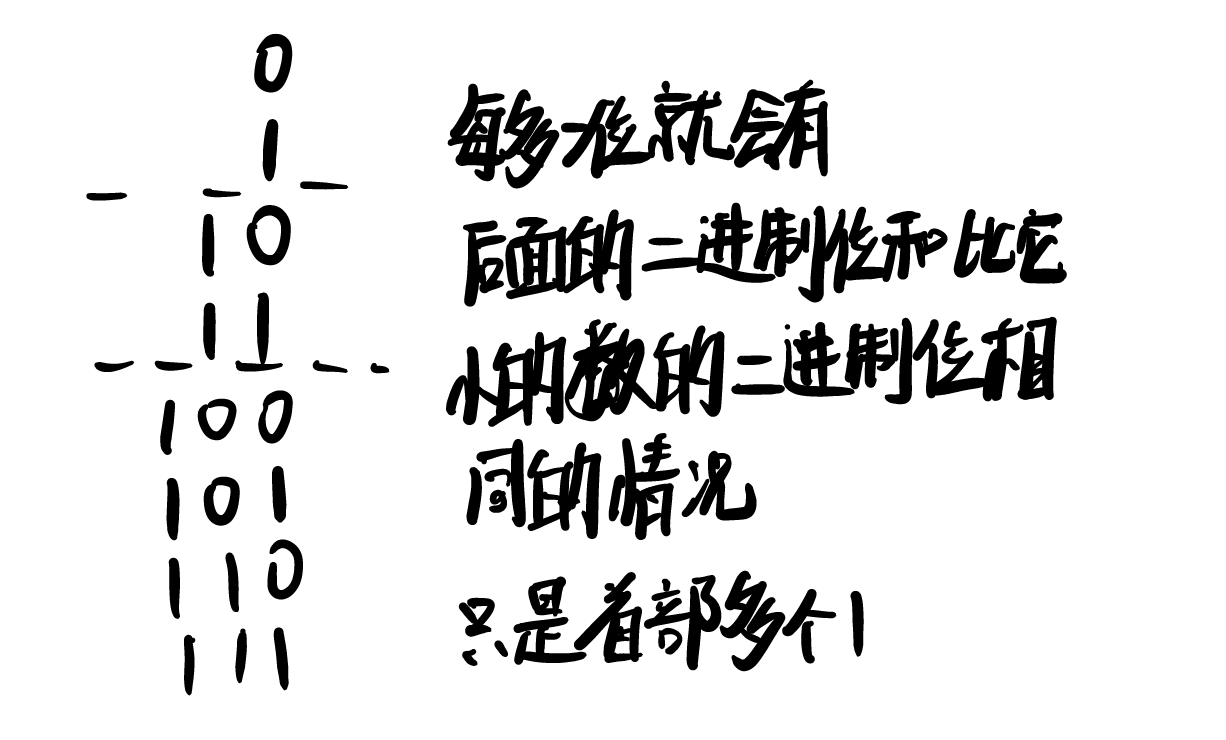 0
1
- - -
10
11
- - - - -
100
101
110
111
每多一位就会有
后面的二进制位和比它
小的数的二进制位相
同的情况
只是首部多个1